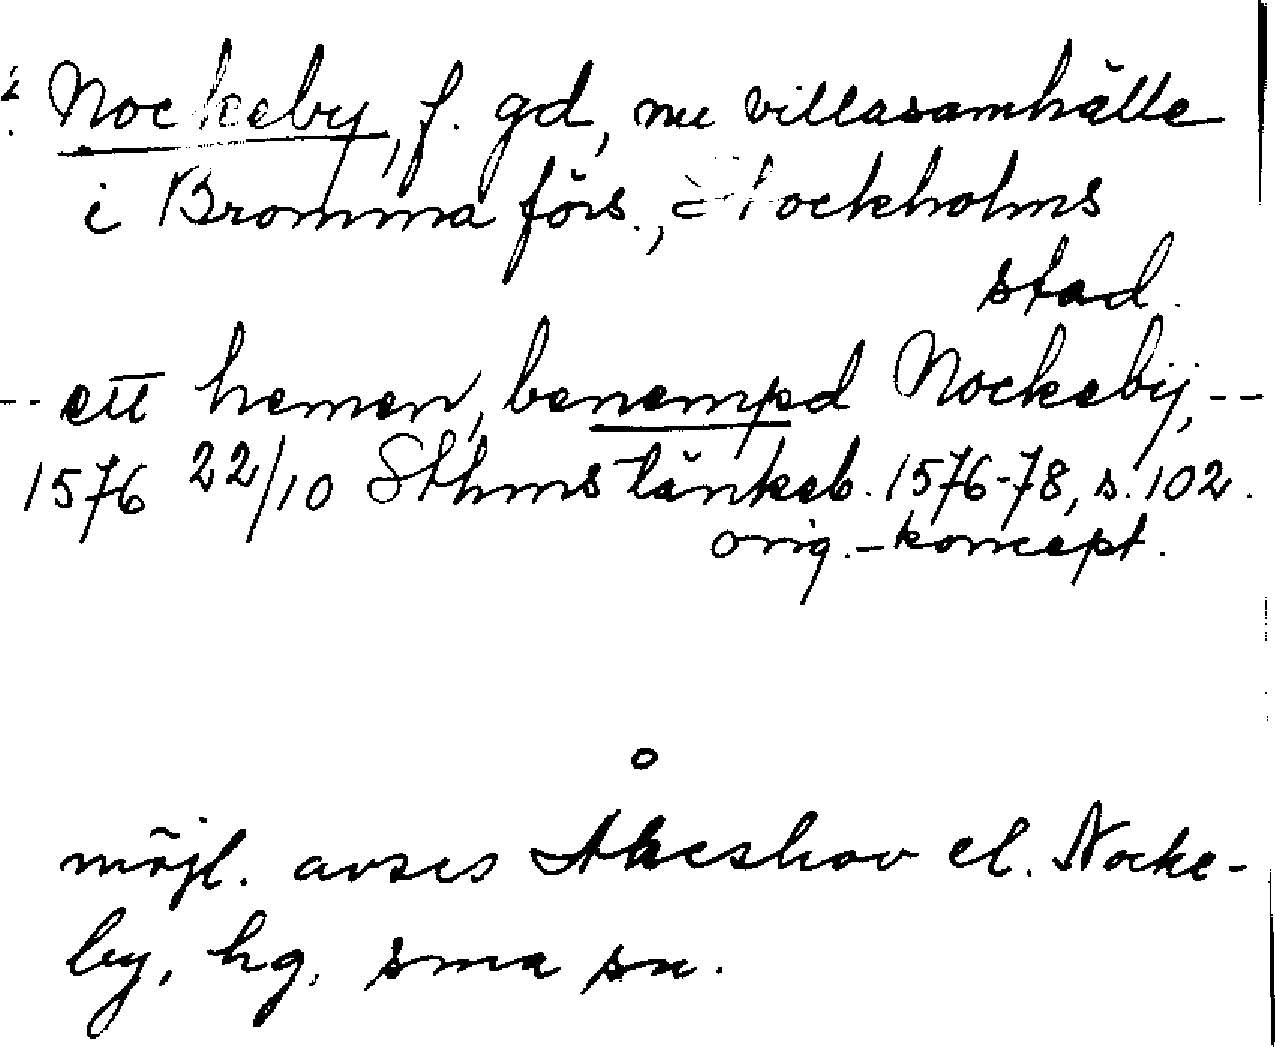 Nockeby, f. gd, nu villasamhälle
i Bromma förs., Stockholms
stad.
-- ett hemen, benempd Nockebij, --
1576 22/10 Sthms tänkeb. 1576-78, s. 102.
orig.-koncept.
möjl. avses Åkeshov el. Nocke-
by, hg, sma sn.